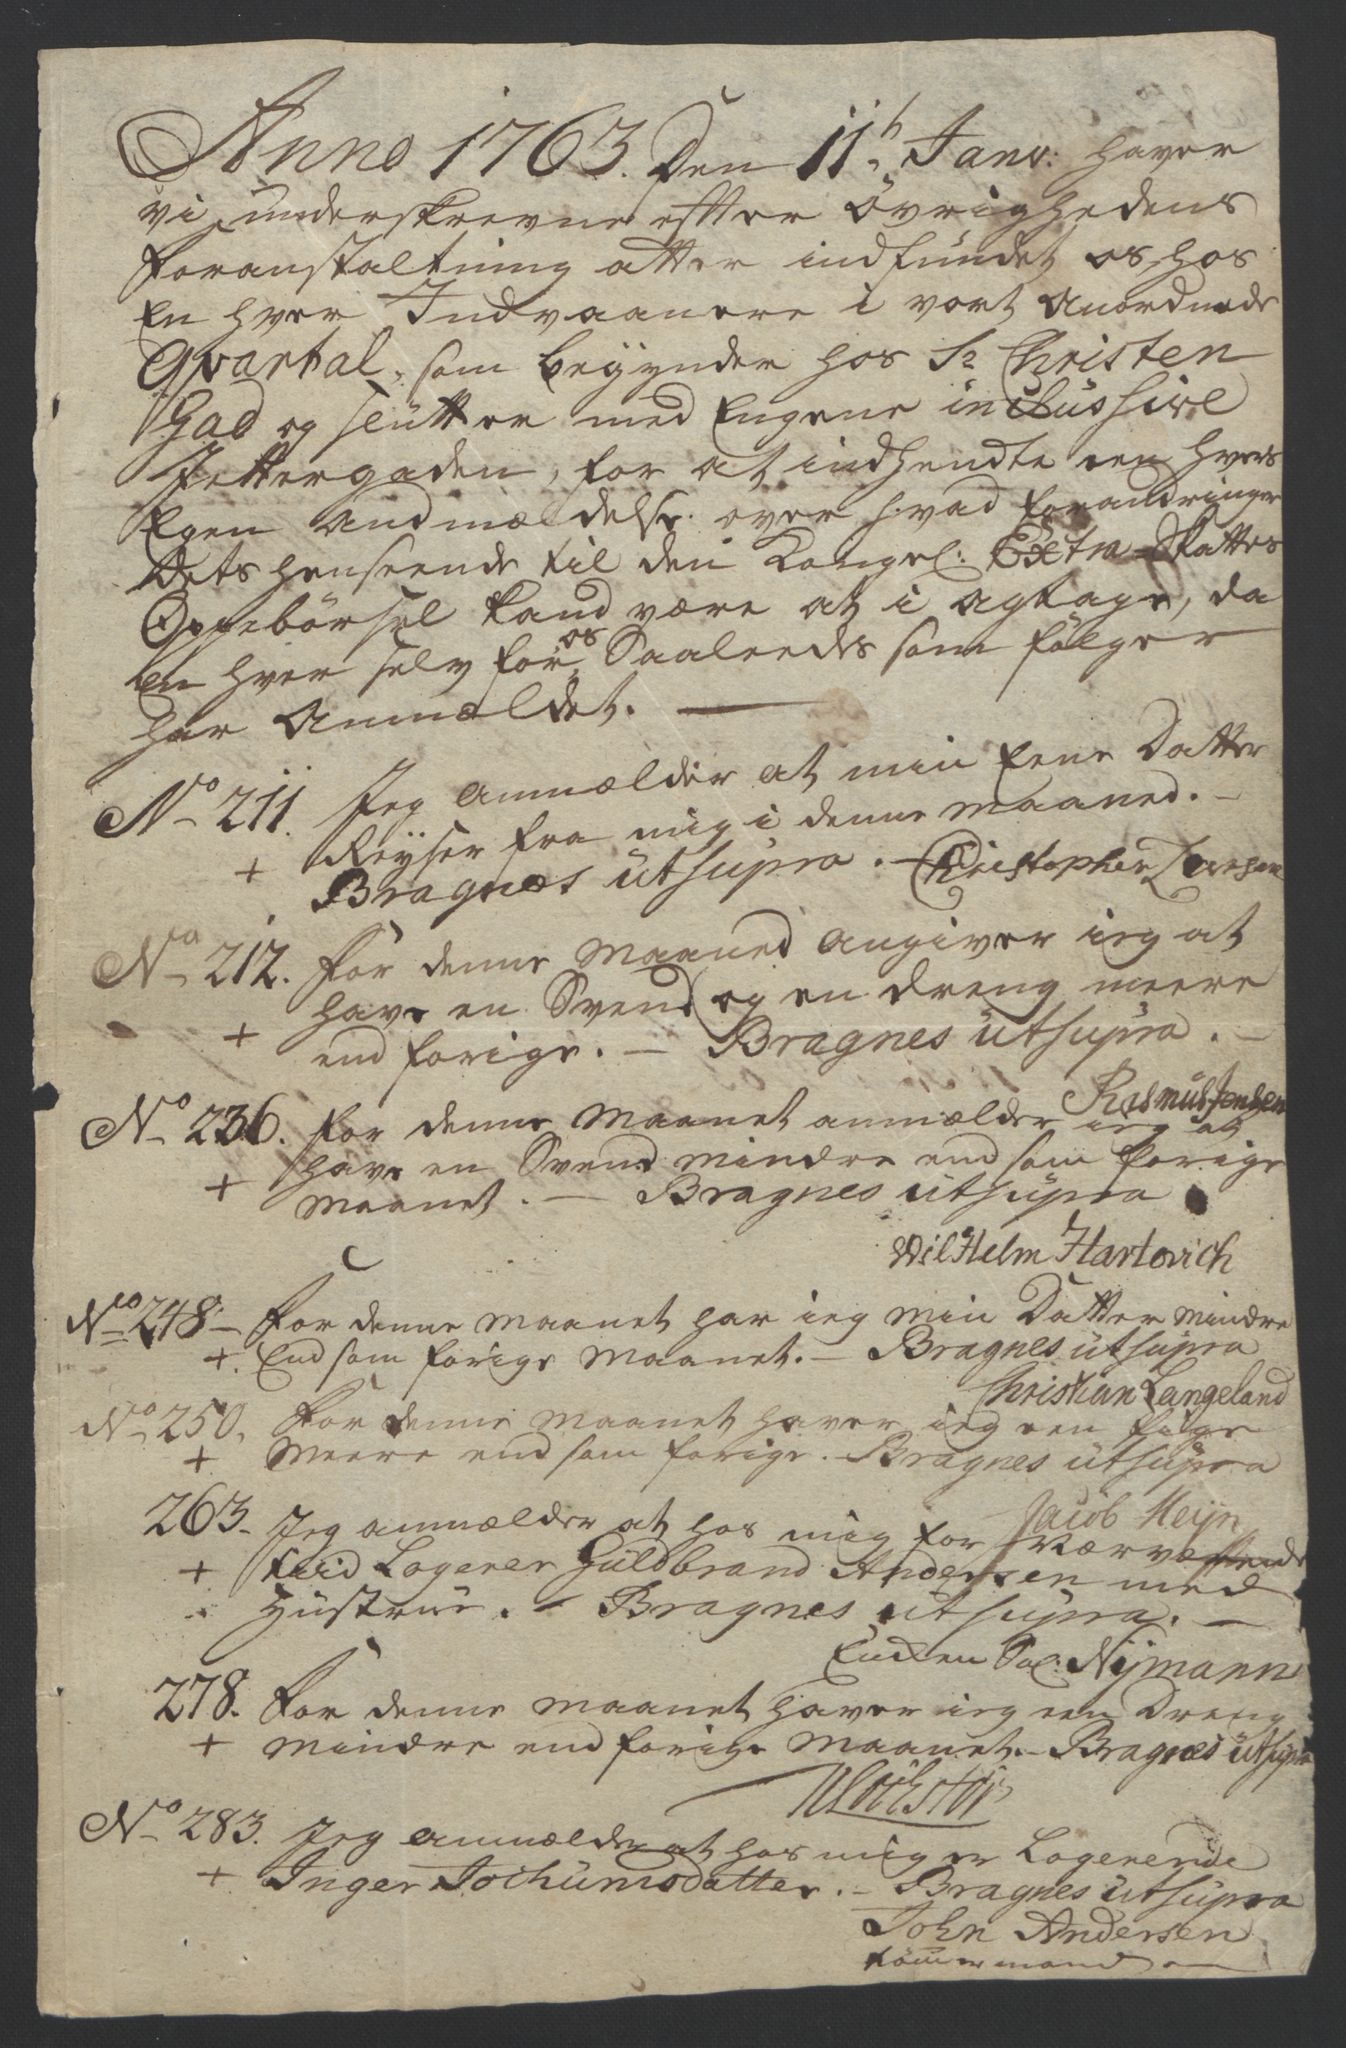 Anno 1763. Den 11h Janv: haver
vi underskrevne efter Övrighedens
foranstaltning atter indfundet os hos
En hver Indvaanere i vort anordnede
Qvartal, som begynder hos Sr Christen
Gad og slutter med Engene inclussive
for at indhendte een hvers
Egen Andmældelse over hvad forandringer
Dets henseende til den Kongel: Extra-Skattes
Oppebörsel kand være at i agtage, da
En hver selv for os Saaleedes som fölger
har Anmældet. —
No 211. Jeg anmælder at min Eene Datter
+ Reyser fra mig i denne Maaned. –
Bragnæs ut supra. – Christopher
No 212. For denne Maaned angiver ieg at
have en Svend og en dreng meere
+ end forige. – Bragnes ut supra. –
Rasmus Jensen
No 236. For denne Maanet anmælder ieg at
have en Svend mindre end som forige
+ Maanet. – Bragnes ut supra
Wilhelm Hartovich
No 248 – For denne Maanet har ieg min Datter mindre
+. End som forige Maanet. – Bragnes ut supra
Christian Langeland
No 250. For denne Maanet haver ieg een Pige
+ Meere end som forige. – Bragnes ut supra
Jacob Meyn
263. Jeg anmælder at hos mig for nærværende
+ tiid Logerer Guldbrand Andersen med
Hustrue. – Bragnes ut supra. –
Enken Sal: Nijmann
278. For denne Maanet haver ieg een Dreng
+ Mindre end forige Maanet. – Bragnes ut supra
No 283. Jeg anmælder at hos mig er Logerende
+ Inger Jochumsdatter. – Bragnes ut supra
John Andersen
tömmermand